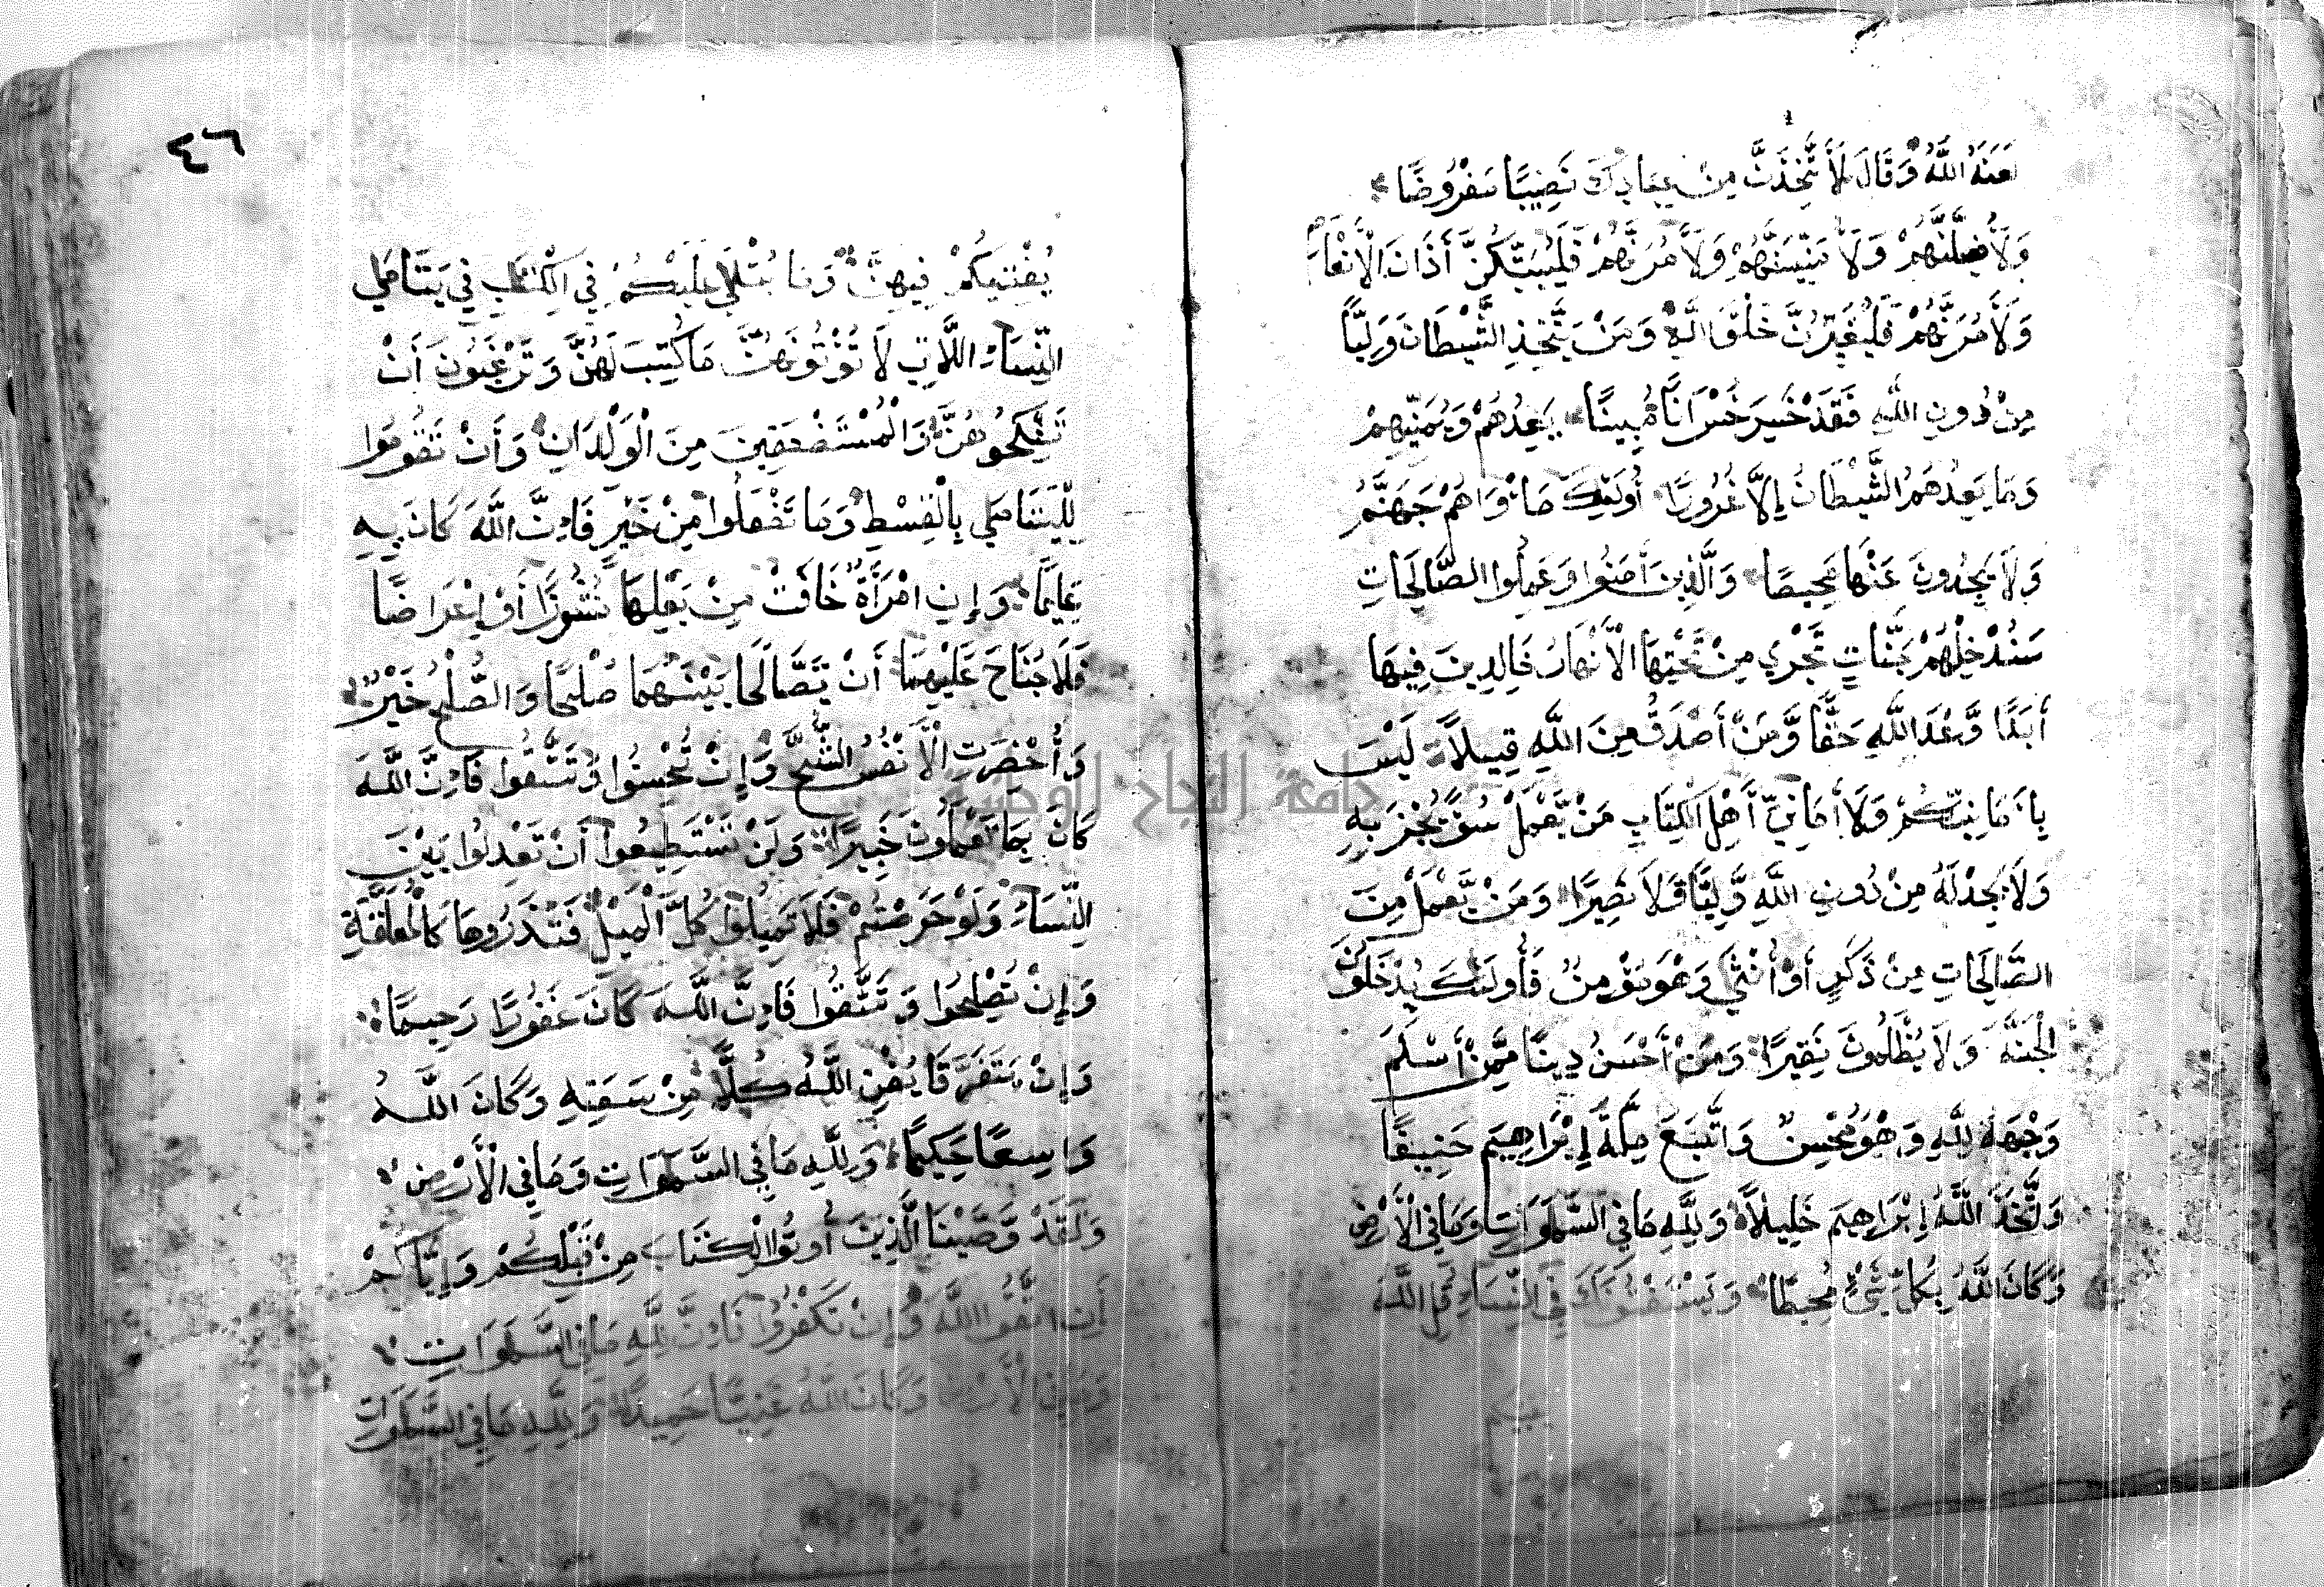 لَعَنَهُ اللَّهُ وَقَالَ لَأَتَّخِذَنَّ مِنْ عِبَادِكَ نَصِيبًا مَفْرُوضًا
وَلَأُضِلَّنَّهُمْ وَلَأُمَنِّيَنَّهُمْ وَلَأَمُرَنَّهُمْ فَلَيُبَتِّكُنَّ أَذَانَ الْأَنْعَامِ
وَلَأَمُرَنَّهُمْ فَلَيُغَيِّرُنَّ خَلْقَ اللَّهِ وَمَنْ يَتَّخِذِ الشَّيْطَانَ وَلِيًّا
مِنْ دُونِ اللَّهِ فَقَدْ خَسِرَ خُسْرَانًا مُبِينًا يَعِدُهُمْ وَيُمَنِّيهِمْ
وَمَا يَعِدُهُمُ الشَّيْطَانُ إِلَّا غُرُورًا أُولَئِكَ مَأْوَاهُمْ جَهَنَّمُ
وَلَا يَجِدُونَ عَنْهَا مَحِيصًا وَالَّذِينَ أَمَنُوا وَعَمِلُوا الصَّالِحَاتِ
سَنُدْخِلُهُمْ جَنَّاتٍ تَجْرِي مِنْ تَحْتِهَا الْأَنْهَارُ خَالِدِينَ فِيهَا
أَبَدًا وَعْدَ اللَّهِ حَقًّا وَمَنْ أَصْدَقُ مِنَ اللَّهِ قِيلًا لَيْسَ
بِأَمَانِيِّكُمْ وَلَا أَمَانِيِّ أَهْلِ الْكِتَابِ مَنْ يَعْمَلْ سُوًّ يُجْزَ بِهِ
وَلَا يَجِدْ لَهُ مِنْ دُونِ اللَّهِ وَلِيًّا وَلَا نَصِيرًا وَمَنْ يَعْمَلْ مِنَ
الصَّالِحَاتِ مِنْ ذَكَرٍ أَوْ أُنْثَى وَهْوَ مُؤْمِنٌ فَأُولَئِكَ يُدْخَلُونَ
الْجَنَّةَ وَلَا يُظْلَمُونَ نَقِيرًا وَمَنْ أَحْسَنُ دِينًا مِمَّنْ أَسْلَمَ
وَجْهَهُ لِلَّهِ وَهْوَ مُحْسِنٌ وَاتَّبَعَ مِلَّةَ إِبْرَاهِيمَ حَنِيفًا
وَاتَّخَذَ اللَّهُ إِبْرَاهِيمَ خَلِيلًا وَلِلَّهِ مَا فِي السَّمَوَاتِ وَمَا فِي الْأَرْضِ
وَكَانَ اللَّهُ بِكُلِّ شَيْءٍ مُحِيطًا وَيَسْتَفْتُونَكَ فِي النِّسَاءِ قُلِ اللَّهُ
٤٦
يُفْتِيكُمْ فِيهِنَّ وَمَا يُتْلَى عَلَيْكُمْ فِي الْكِتَابِ فِي يَتَامَى
النِّسَاءِ اللَّاتِي لَا تُؤْتُونَهُنَّ مَا كُتِبَ لَهُنَّ وَتَرْغَبُونَ أَنْ
تَنْكِحُوهُنَّ وَالْمُسْتَضْعَفِينَ مِنَ الْوِلْدَانِ وَأَنْ تَقُومُوا
لِلْيَتَامَى بِالْقِسْطِ وَمَا تَفْعَلُوا مِنْ خَيْرٍ فَإِنَّ اللَّهَ كَانَ بِهِ
عَلِيمًا وَإِنِ امْرَأَةٌ خَافَتْ مِنْ بَعْلِهَا نُشُوزًا أَوْ إِعْرَاضًا
فَلَا جُنَاحَ عَلَيْهِمَا أَنْ يَصَّالَحَا بَيْنَهُمَا صُلْحًا وَالصُّلْحُ خَيْرٌ
وَأُحْضِرَتِ الْأَنْفُسُ الشُّحَّ وَإِنْ تُحْسِنُوا وَتَتَّقُوا فَإِنَّ اللَّهَ
كَانَ بِمَا تَعْمَلُونَ خَبِيرًا وَلَنْ تَسْتَطِيعُوا أَنْ تَعْدِلُوا بَيْنَ
النِّسَاءِ وَلَوْ حَرَصْتُمْ فَلَا تَمِيلُوا كُلَّ الْمَيْلِ فَتَذَرُوهَا كَالْمُعَلَّقَةِ
وَإِنْ تُصْلِحُوا وَتَتَّقُوا فَإِنَّ اللَّهَ كَانَ غَفُورًا رَحِيمًا
وَإِنْ يَتَفَرَّقَا يُغْنِ اللَّهُ كُلًّا مِنْ سَعَتِهِ وَكَانَ اللَّهُ
وَاسِعًا حَكِيمًا وَلِلَّهِ مَا فِي السَّمَوَاتِ وَمَا فِي الْأَرْضِ
وَلَقَدْ وَصَّيْنَا الَّذِينَ أُوتُوا الْكِتَابَ مِنْ قَبْلِكُمْ وَإِيَّاكُمْ
أَنِ اتَّقُوا اللَّهَ وَإِنْ تَكْفُرُوا فَإِنَّ لِلَّهِ مَا فِي السَّمَوَاتِ
وَمَا فِي الْأَرْضِ وَكَانَ اللَّهُ غَنِيًّا حَمِيدًا وَلِلَّهِ مَا فِي السَّمَوَاتِ
جامعة النجاح الوطنية